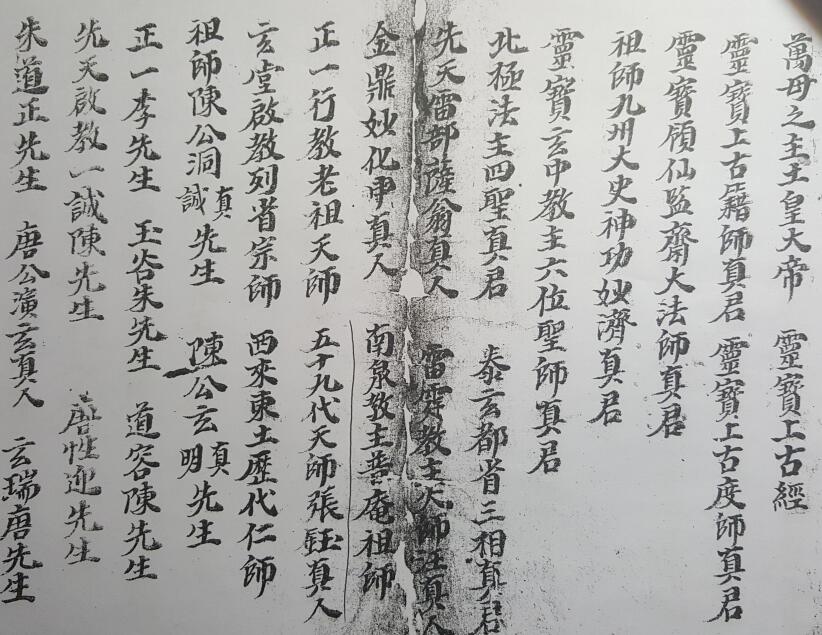 萬母之主主皇大帝　靈寶上古經
靈寶上古籍師真君　靈寶上古度師真君
靈寶領仙監齋大法師真君
祖師九州大史神功妙濟真君
靈寶玄中教主六位聖師真君
北極法主四聖真君　泰玄都省三相真君
先天雷部薩翁真人　雷霆教主天師汪真人
金鼎妙化申真人　南泉教主普庵祖師
正一行教老祖天師　五十九代天師張鈺真人
玄堂啟教列省宗師　西來東土歷代仁師
祖師陳公洞真誠先生　陳公玄真明先生
正一李先生　玉谷朱先生　道容陳先生
先天啟教一誠陳先生　唐性迎先生
朱道正先生　唐公演玄真人　玄瑞唐先生